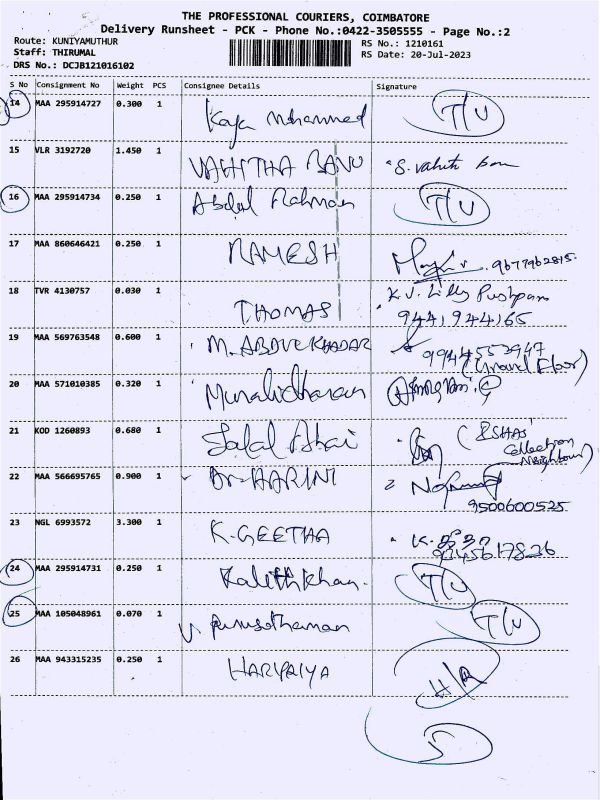 THE PROFESSIONAL COURIERS, COIMBATORE
Delivery Runsheet - PCK - Phone No.:0422-3505555 - Page No.:2
Route: KUNIYAMUTHUR RS No.: 1210161
Staff: THIRUMAL RS Date: 20-Jul-2023
DRS No.: DCJB121016102
S No Consignment No Weight PCS Consignee Details Signature
14 MAA 295914727 0.300 1 Kaja Mohammed T/U
15 VLR 3192720 1.450 1 VAHITHA BANU S. Vahit Ban
16 MAA 295914734 0.250 1 Abdul Rahman T/U
17 MAA 860646421 0.250 1 RAMESH 9677962815
18 TVR 4130757 0.030 1 THOMAS K.J. Lilly Pushpam
9441944165
19 MAA 569763548 0.600 1 M. ABDUL KHADAR 9944553947
(Ground Floor)
20 MAA 571010385 0.320 1 Muralidharan
21 KOD 1260893 0.680 1 Jalal Abai (ESHAS
Collection
Neighbour)
22 MAA 566695765 0.900 1 Dr. HARINI
9500600525
23 NGL 6993572 3.300 1 K. GEETHA K.
9245617826
24 MAA 295914731 0.250 1 Kalith Khan. T/U
25 MAA 105048961 0.070 1 Purusothaman T/U
26 MAA 943315235 0.250 1 HARIPRIYA H/R
5